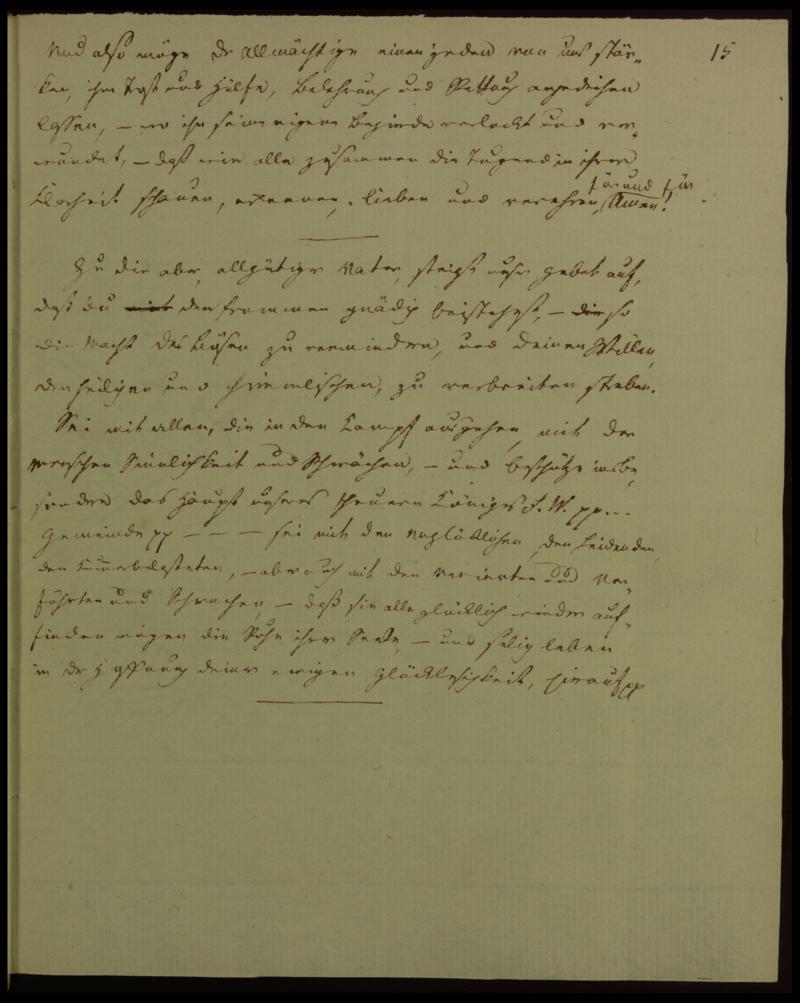 15
Und also möge der Allmächtige einen jeden von uns stär-
ken, ihm Trost und Hülfe, Belehrung und Rettung angedeihen
lassen, – wo ihn seine eigene Begierde verlockt und ver-
wundet, – daß wir alle zusammen die Tugend in ihrer
Klarheit schauen, erkennen, lieben und verehren, für und für
Amen!
Zu dir aber, allgütiger Vater, steigt unser Gebet auf,
daß du mit den frommen gnädig beistehest, – die so
die Macht des Bösen zu vermindern, und deinen Willen,
den heiligen und himmlischen, zu verbreiten streben.
Sei mit allen, die in den Kampf ausgehen, mit der
menschen Sinnlichkeit und Schwächen, – und beschütze insbe
sondere das Haupt unseres theuern Königes F. W. pp. – –
Gemeinde pp – – – sei mit den Unglücklichen, den Leidenden,
den Kummerbelasteten, – aber auch mit den Verirrten und Ver-
führten und Schwachen, – daß sie alle glücklich wieder auf-
finden mögen die Ruhe ihrer Seele, – und selig leben
in der Hoffnung deiner ewigen Glückseligkeit, hierauf pp